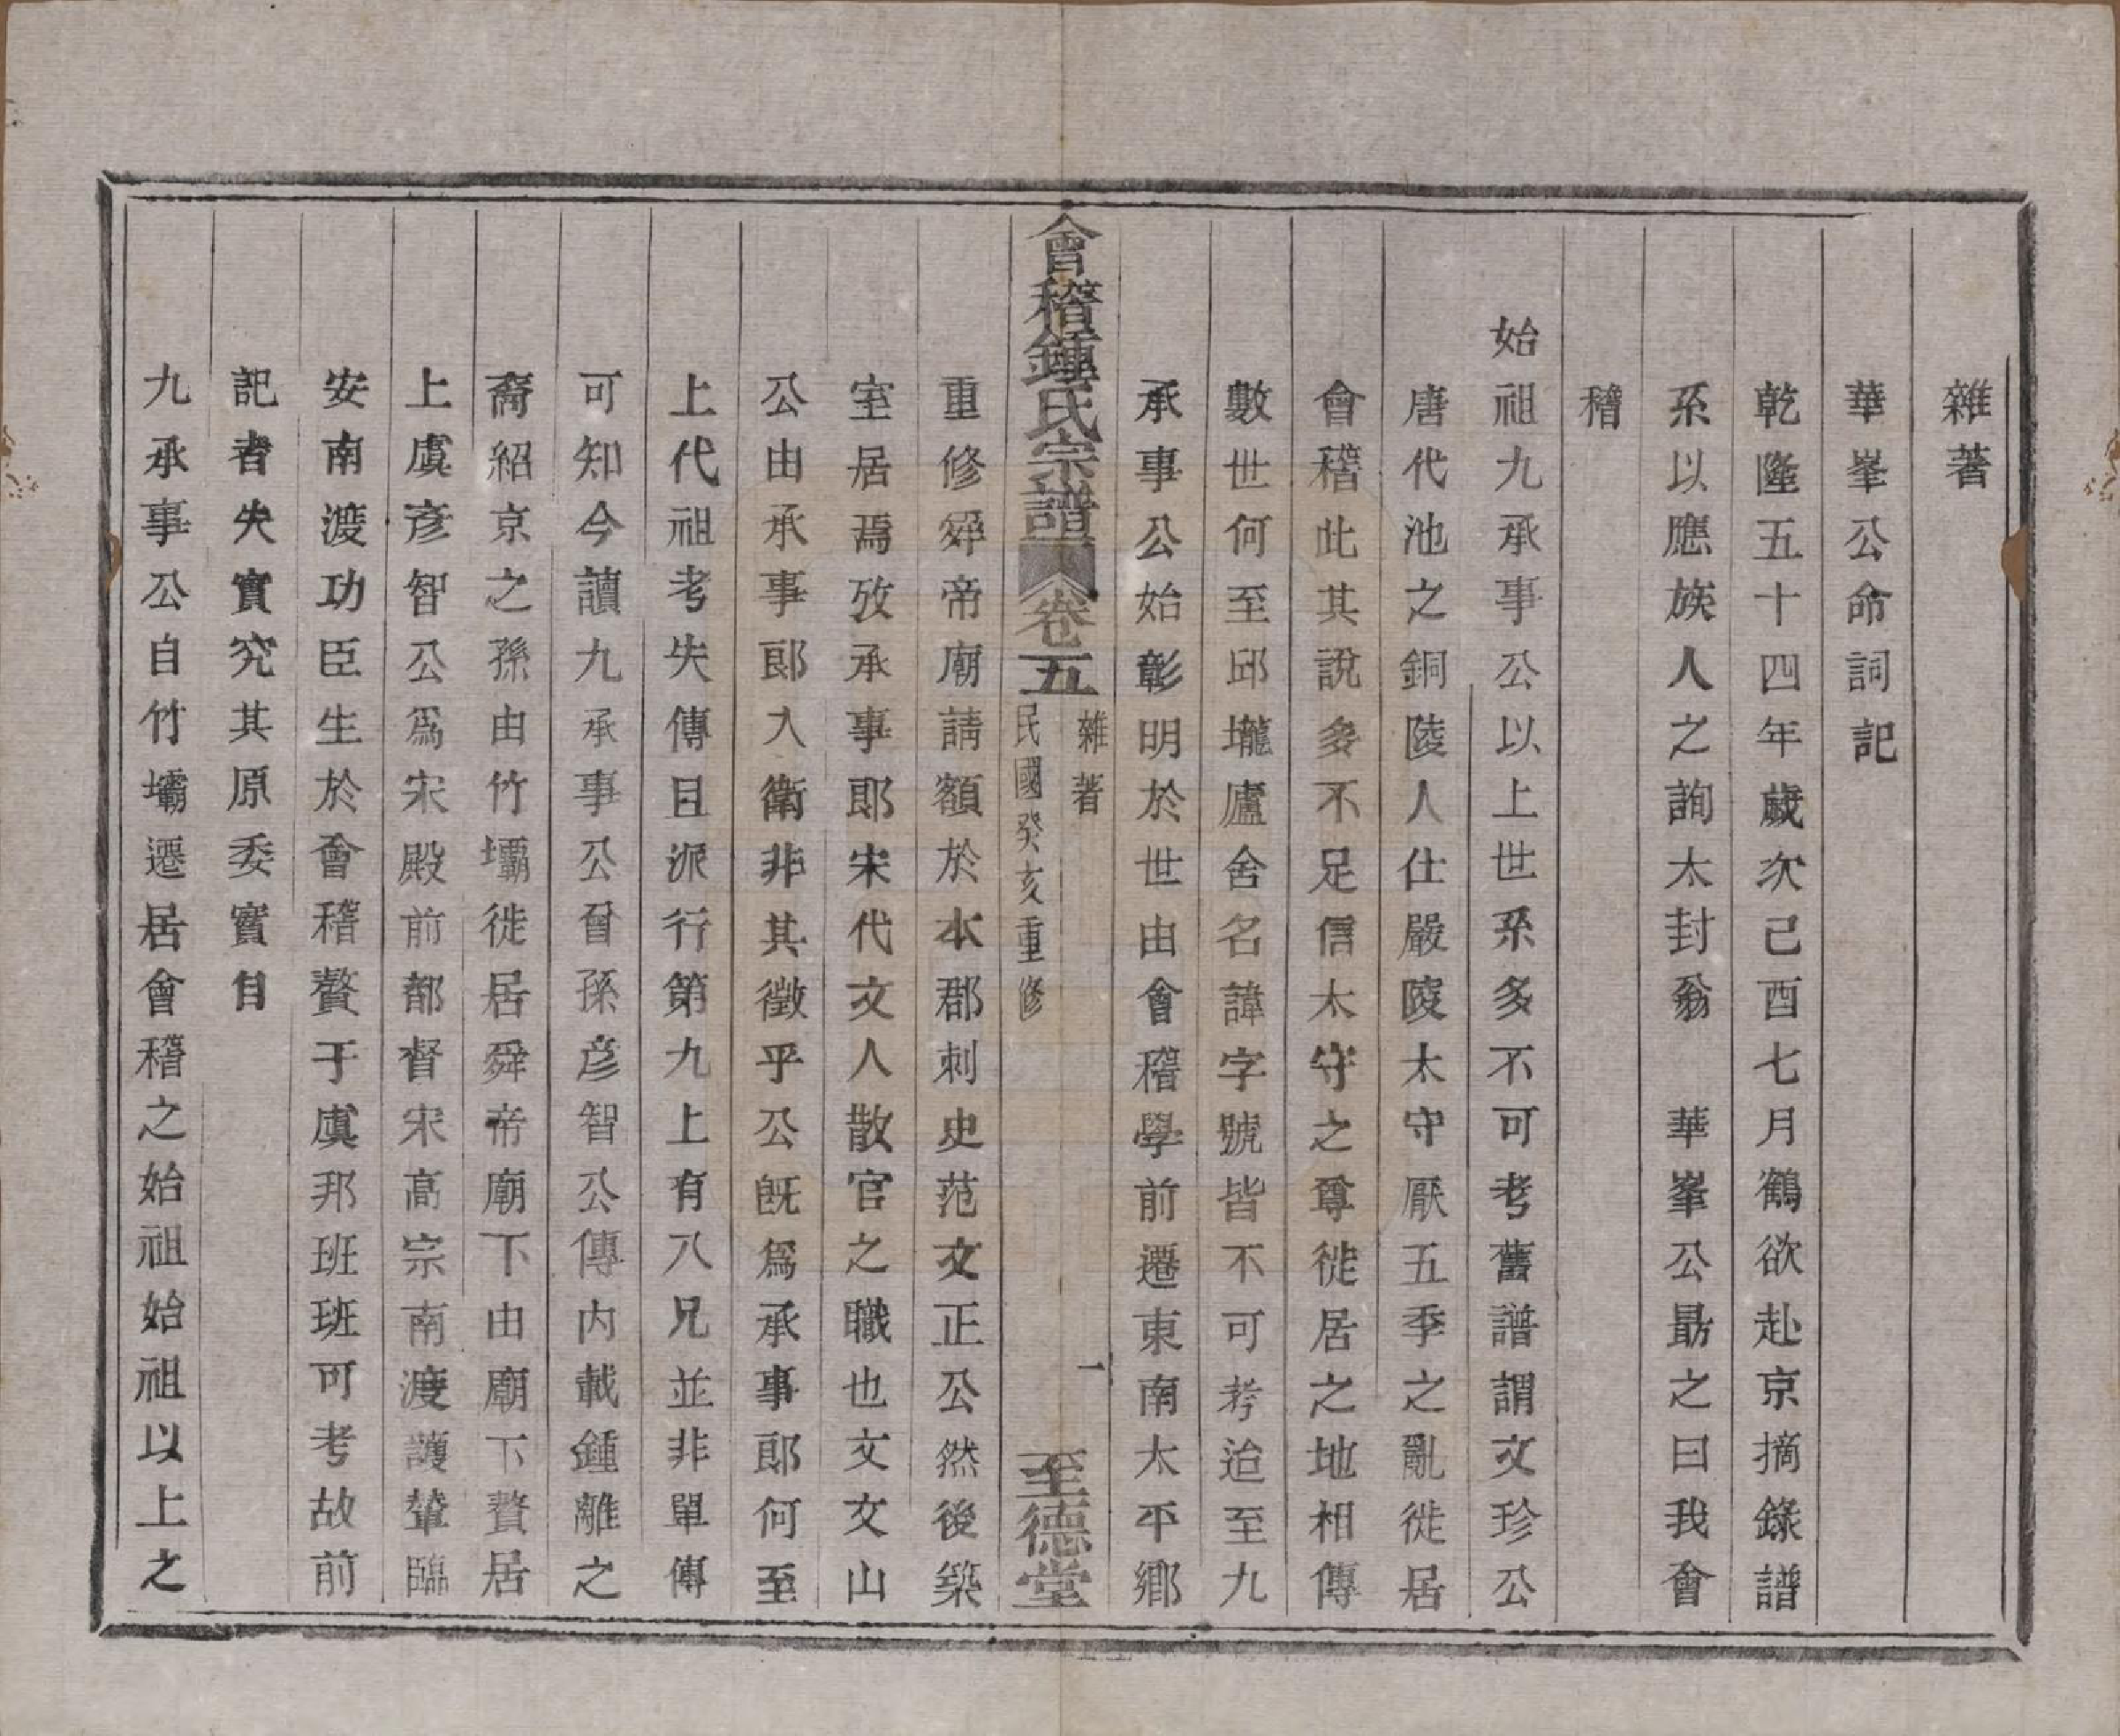 雜著
華峯公命詞記
乾隆五十四年歲次己酉七月鶴欲赴京摘錄譜
系以應族人之詢太封翁　華峯公勗之曰我會
稽
始祖九承事公以上世系多不可考舊譜謂文珍公
唐代池之銅陵人仕嚴陵太守厭五季之亂徙居
會稽此其說多不足信太守之尊徙居之地相傳
數世何至邱壠廬舍名諱字號皆不可考迨至九
承事公始彰明於世由會稽學前遷東南太平鄉
會稽鍾氏宗譜　卷五　雜著　民國癸亥重修　一　至德堂
重修舜帝廟請額於本郡刺史范文正公然後築
室居焉攷承事郎宋代文人散官之職也文文山
公由承事郎入衛非其徵乎公旣爲承事郎何至
上代祖考失傳且派行第九上有八兄並非單傳
可知今讀九承事公曾孫彥智公傳內載鍾離之
裔紹京之孫由竹壩徙居舜帝廟下由廟下贅居
上虞彥智公爲宋殿前都督宋高宗南渡護輦臨
安南渡功臣生於會稽贅于虞邦班班可考故前
記者失實究其原委實自
九承事公自竹壩遷居會稽之始祖始祖以上之